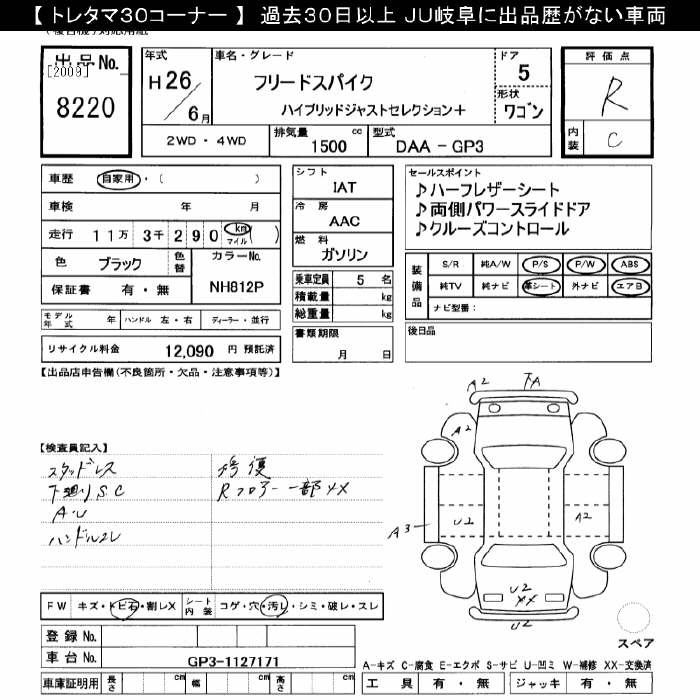 【 トレタマ30コーナー 】 過去30日以上 JU岐阜に出品歴がない車両
出品No.
[2009]
8220
年式
H 26 / 6月
車名・グレード
フリードスパイク
ハイブリッドジャストセレクション+
ドア
5
形状
ワゴン
評価点
R
内装
C
2WD・4WD
排気量 1500 cc
型式 DAA - GP3
車歴 自家用・( )
車検 年 月
走行 11万 3千 290 km マイル ( )
色 ブラック 色替
カラーNo.
NH812P
保証書 有・無
モデル年式 年 ハンドル 左・右 ディーラー・並行
リサイクル料金 12,090 円 預託済
シフト
IAT
冷房
AAC
燃料
ガソリン
乗車定員 5 名
積載量 kg
総重量 kg
書類期限
月 日
セールスポイント
♪ハーフレザーシート
♪両側パワースライドドア
♪クルーズコントロール
装備品
S/R 純A/W P/S P/W ABS
純TV 純ナビ 革シート 外ナビ エアB
ナビ型番：
後日品
【出品店申告欄(不良箇所・欠品・注意事項等)】
【検査員記入】
スタッドレス
下廻りS.C
A.U
ハンドルスレ
修復
Rフロアー一部XX
A2
下A
A2
A3
U2
A2
U2
XX
U2
FW キズ・トビ石・割レX
シート内装 コゲ・穴・汚レ・シミ・破レ・スレ
登録No.
車台No. GP3-1127171
車庫証明用 長さ cm 幅 cm 高さ cm
スペア
A-キズ C-腐食 E-エクボ S-サビ U-凹ミ W-補修 XX-交換済
工具 有・無 ジャッキ 有・無